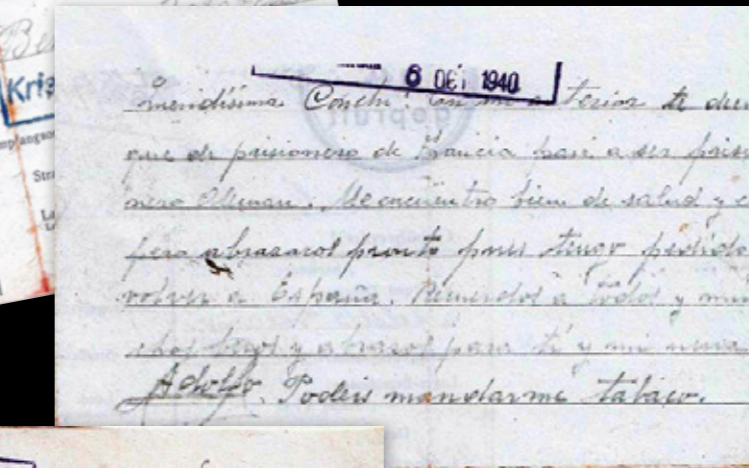 Be
Kris
Stra
6 OCT 1940
geprüft
Conchi, en mi anterior te de
que de prisionero de Francia pasé a ser prisio
nero Aleman. Me encuentro bien de salud y es
pero abrazaros pronto pues tengo pedido
volver a España. Recuerdos a todos y mu
chos besos y abrazos para ti y mi nena
Adolfo. Podeis mandarme tabaco.